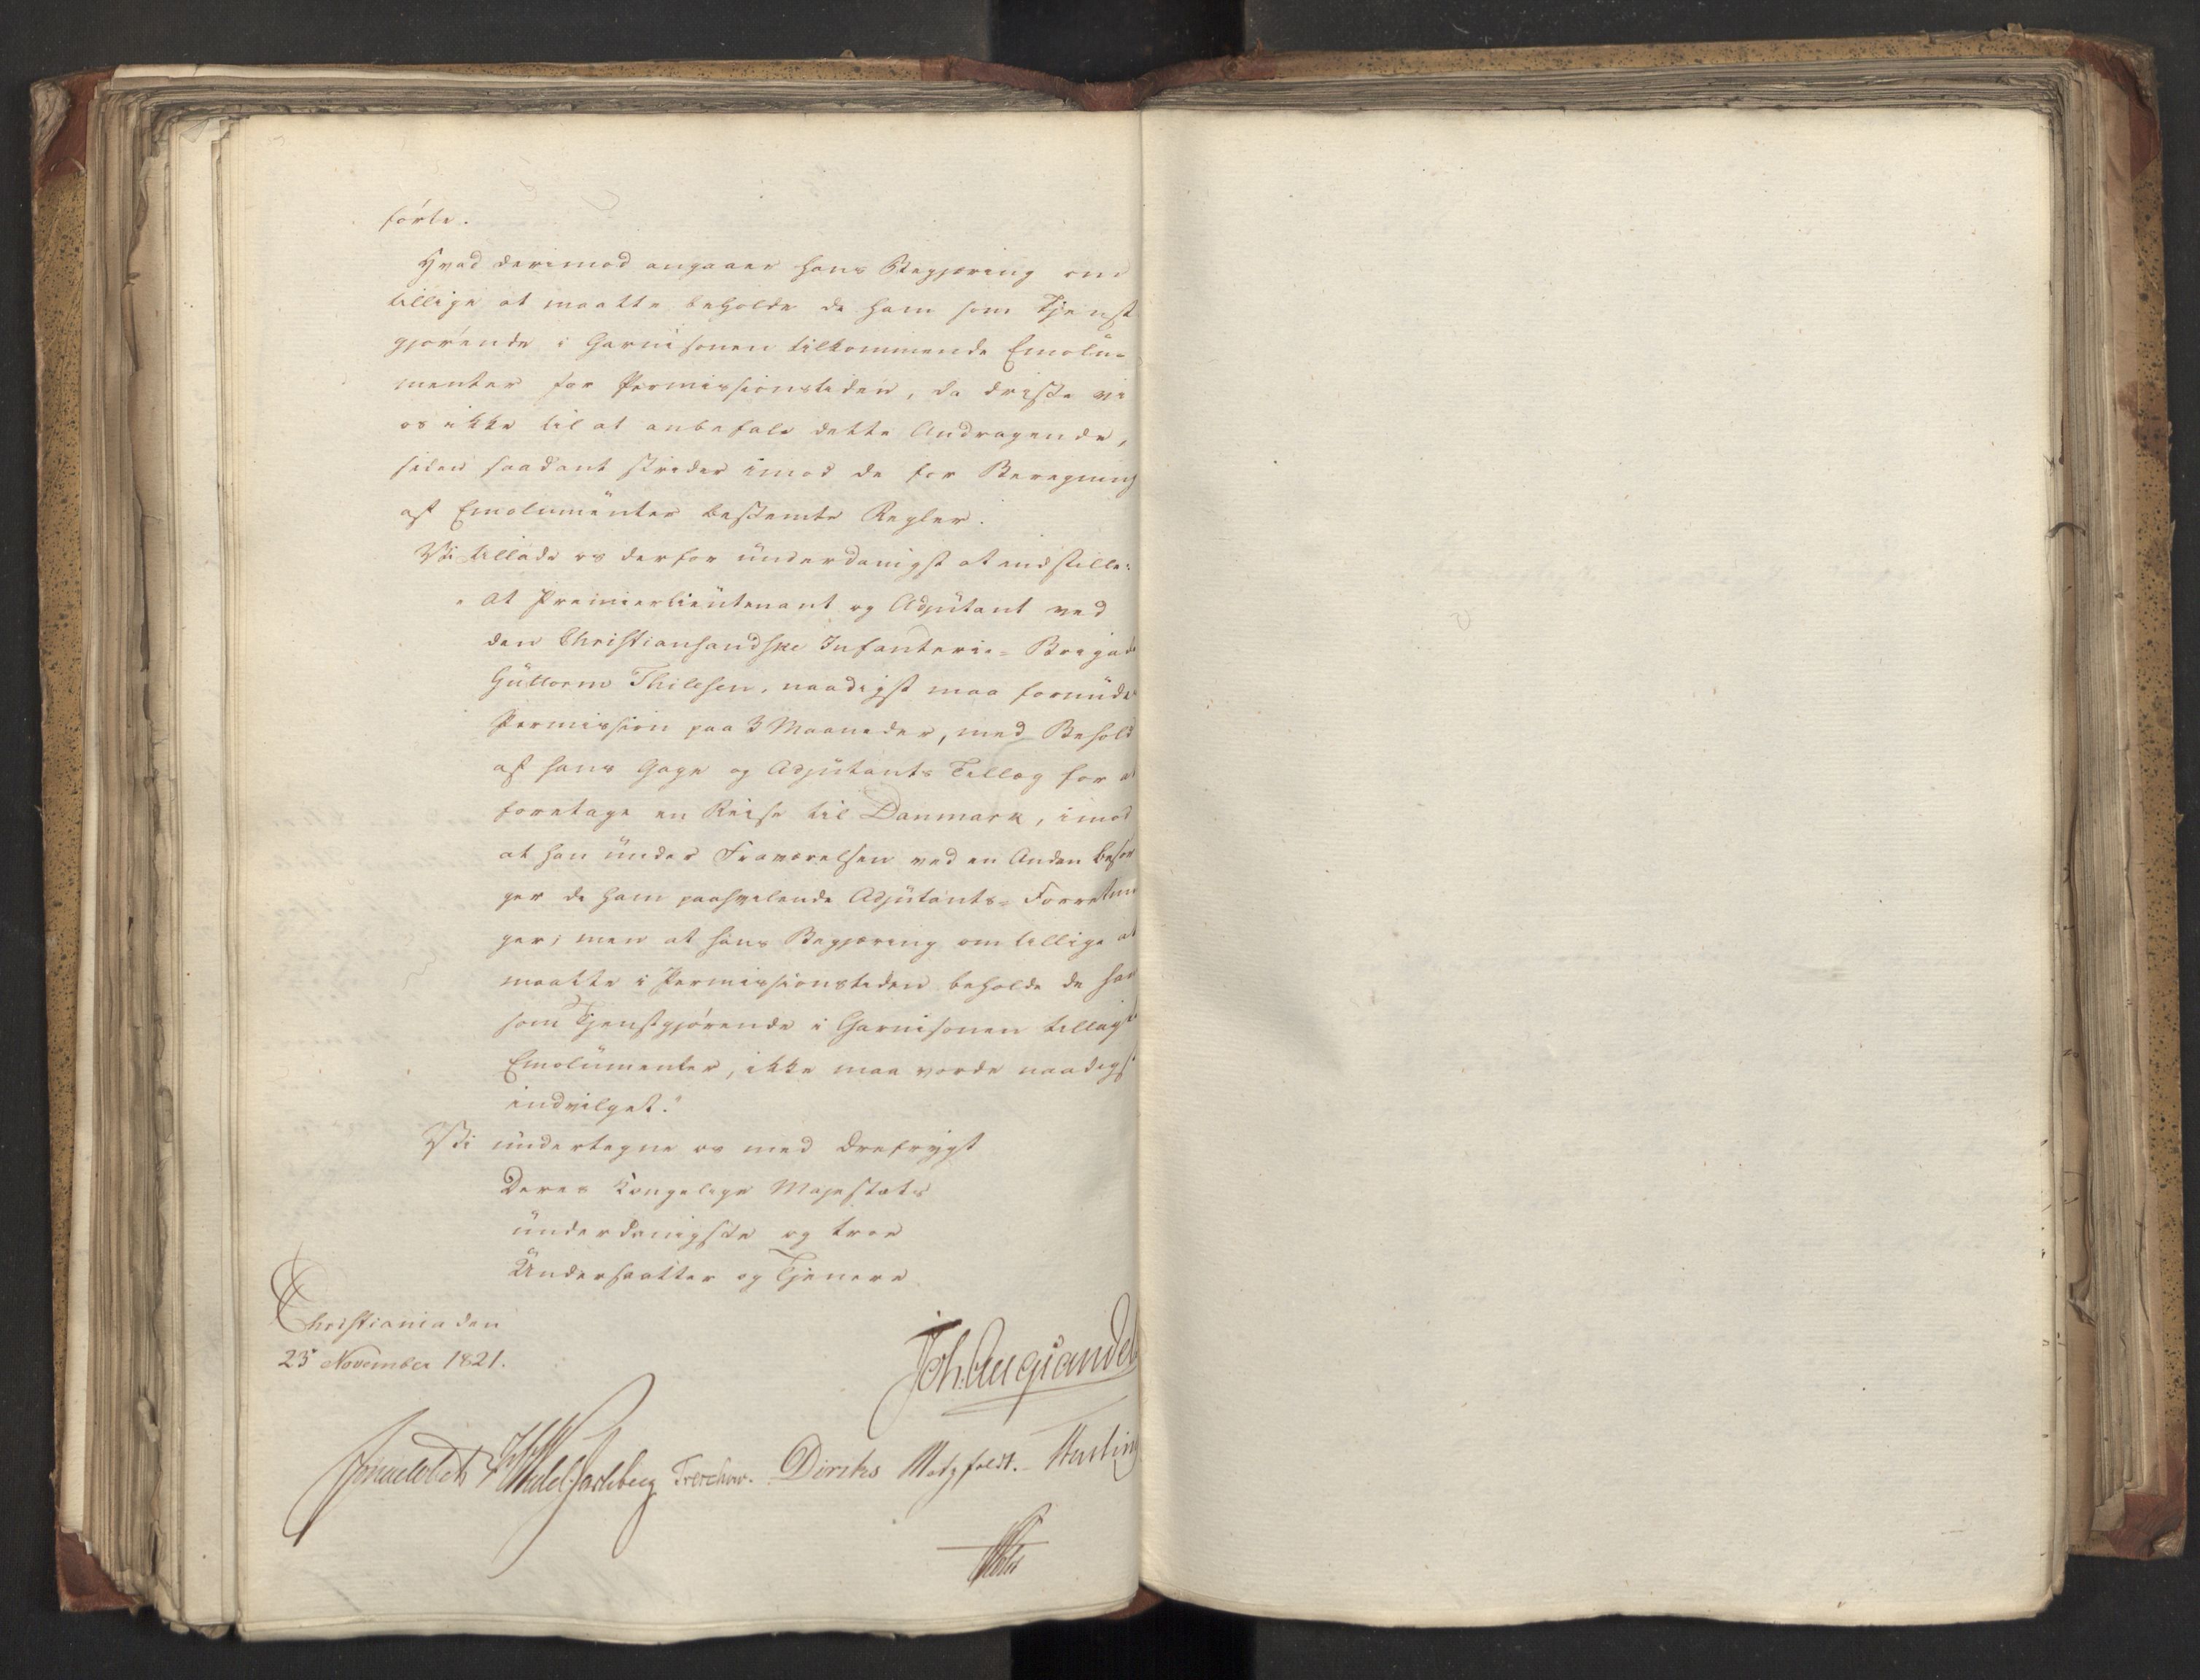 förte.
Hvad derimod angaaer hans Begjæring om
tillige at maatte beholde de ham som Tjenst
gjörende i Garnisonen tilkommende Emolu=
menter for Permissionstiden, da driste vi
os ikke til at anbefale dette Andragende,
siden saadant strider imod de for Beregning
af Emolumenter bestemte Regler.
Vi tillade os derfor underdanigst at indstille:
"at Premierlieutenant og Adjutant ved
den Christiansandske Infanterie=Brigade
Guttorm Thilesen, naadigst maa forunde
Permission paa 3 Maaneder, med Behold
af hans Gage og Adjutants Tillæg for at
foretage en Reise til Danmark, imod
at han under Fraværelsen ved en Anden besör
ger de ham paahvilende Adjutants=Forretnin
ger; men at hans Begjæring om tillige at
maatte i Permissionstiden beholde de ham
som Tjenstgjörende i Garnisonen tillagte
Emolumenter, ikke maa vorde naadigst
indvilget."
Vi undertegne os med Ærefrygt
Deres Kongelige Majestæts
underdanigste og troe
Undersaatter og Tjenere
Christiania den
23 November 1821.
Joh. Aug. Sandels
Treschow. Diriks Motzfeldt.